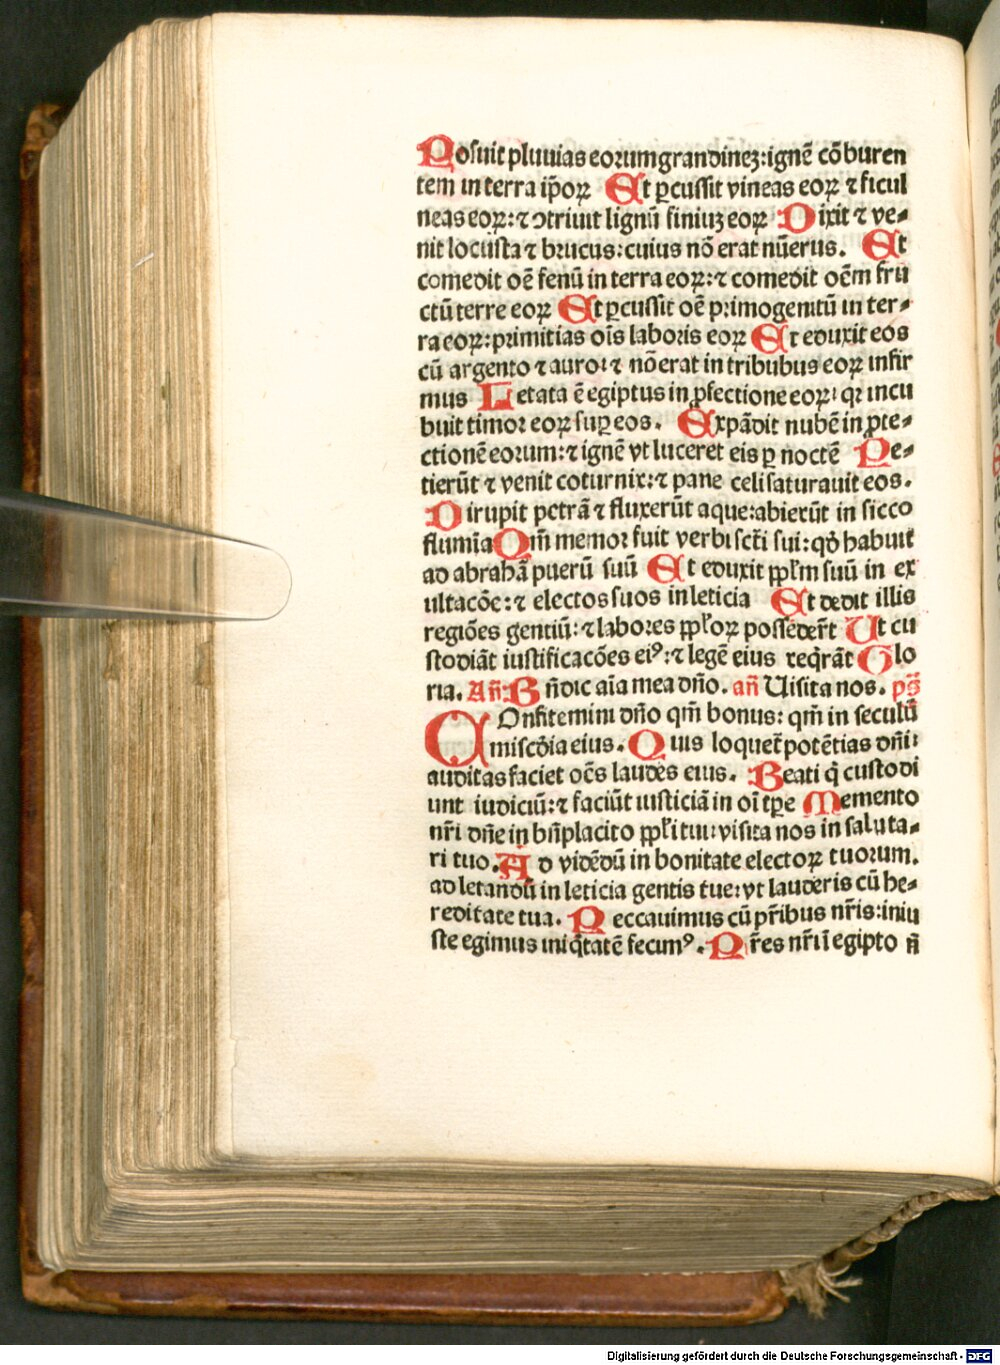 Posuit pluuias eorumgrandinez:ignē cōburen
tem in terra ip̄oꝝ Et ꝑcussit vineas eoꝝ ⁊ ficul
neas eoꝝ:⁊ ꝯtriuit lignū finiuꝫ eoꝝ Dixit ⁊ ve⸗
nit locusta ⁊ brucus:cuius nō erat nūerus. Et
comedit oē fenū in terra eoꝝ:⁊ comedit oēm fru
ctū terre eoꝝ Et ꝑcussit oē primogenitū in ter⸗
ra eoꝝ:primitias oīs laboris eoꝝ Et eduxit eos
cū argento ⁊ auro:⁊ nō erat in tribubus eoꝝ infir
mus Letata ē egiptus in ꝓfectione eoꝝ: qꝛ incu
buit timor eoꝝ suꝑ eos. Expādit nubē in ꝓte⸗
ctionē eorum:⁊ ignē vt luceret eis ꝑ noctē Pe⸗
tierūt ⁊ venit coturnix:⁊ pane celi saturauit eos.
Dirupit petrā ⁊ fluxerūt aque:abierūt in sicco
flumīa Qm̄ memor fuit verbi scti sui:qđ habuit
ad abrahā puerū suū Et eduxit ppl̄m suū in ex
ultacōe:⁊ electos suos in leticia Et dedit illis
regiōes gentiū:⁊ labores ppl̄oꝝ possēdert̄ Ut cu
stodiāt iustificacōes eiꝰ:⁊ legē eius reqrāt Glo
ria. An̄: Bn̄dic aīa mea dn̄o. an̄ Uisita nos. ps̄
COnfitemini dn̄o qm̄ bonus: qm̄ in seculū
miscd̄ia eius. Quis loquet̄ potētias dn̄i:
auditas faciet oēs laudes eius. Beati q̄ custodi
unt iudiciū:⁊ faciūt iusticiā in oī tꝑe Memento
nr̄i dn̄e in bn̄placito ppl̄i tui:visita nos in saluta⸗
ri tuo. Ad vidēdū in bonitate electoꝝ tuorum.
ad letandū in leticia gentis tue:vt lauderis cū he⸗
reditate tua. Peccauimus cū pr̄ibus nr̄is:iniu
ste egimus iniq̄tatē fecimꝰ. Pr̄es nr̄i ī egipto n̄
Digitalisierung gefördert durch die Deutsche Forschungsgemeinschaft - DFG